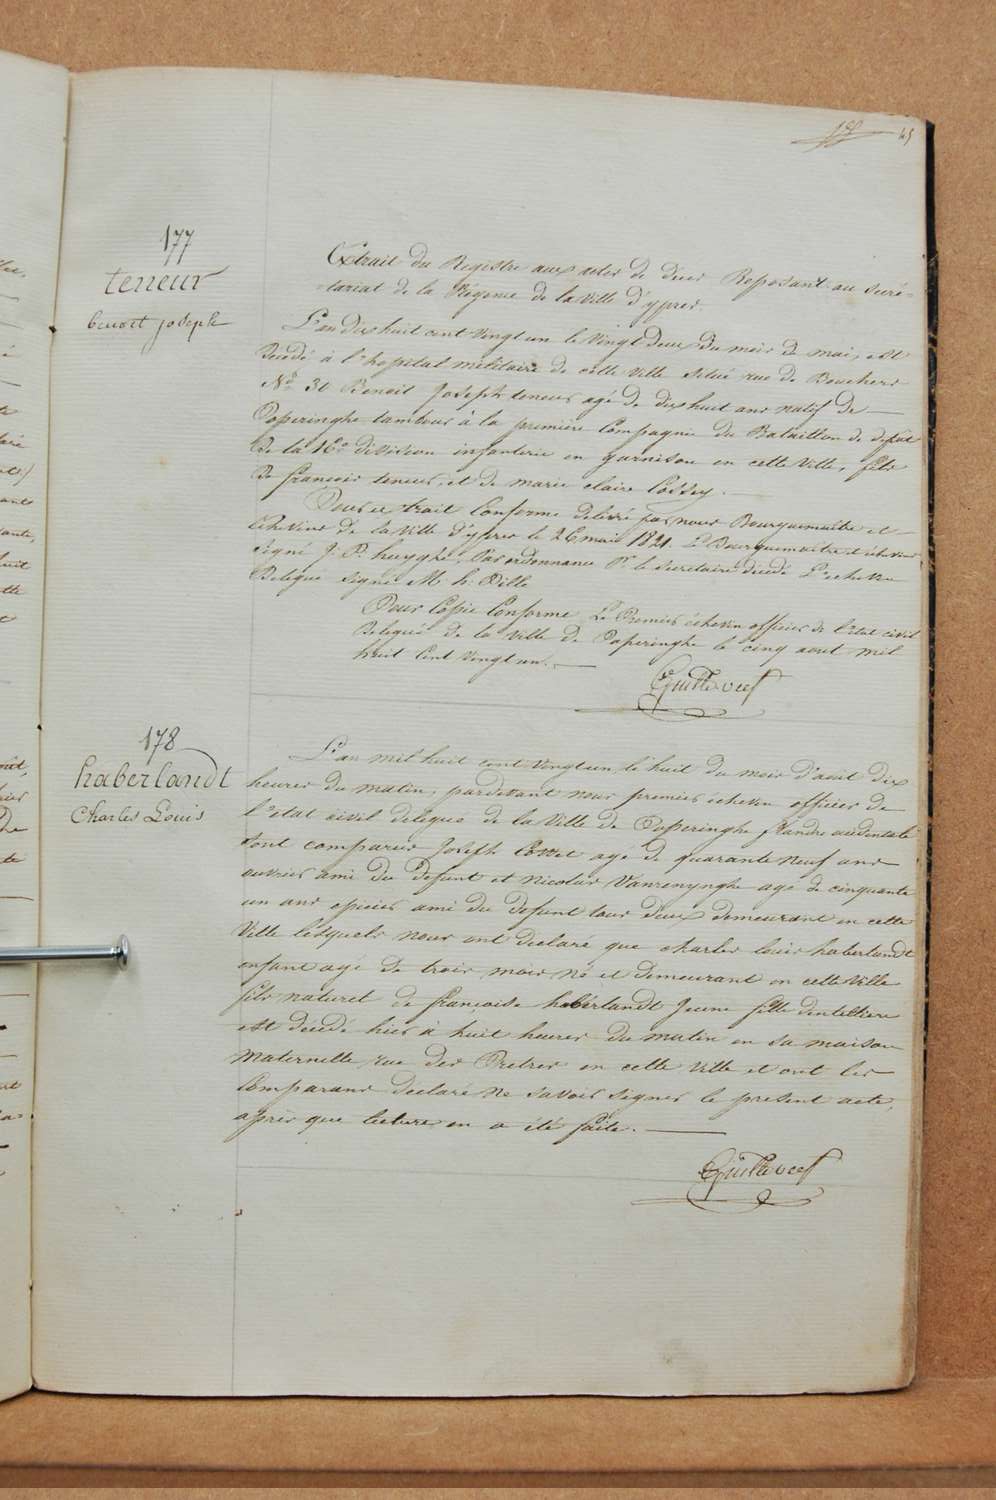 45
177
teneur
benoit joseph
Extrait du Registre aux actes de décès Reposant au secré-
-tariat de la Régence de la Ville d'ypres.
L'an dix huit cent vingt un le vingt deux du mois de mai, est
décédé à l'hopital militaire de cette ville situé rue de Bouchers
No 31 Benoit Joseph teneur agé de dix huit ans natif de
Poperinghe tambour à la première Compagnie du Bataillon de depôt
de la 16e division infanterie en garnison en cette Ville, fils
de françois teneur, et de marie claire
Pour extrait Conforme délivré par nous Bourguemaître et
Echevins de la Ville d'ypres le 26 mai 1821. Le Bourguemaître et échevins
signé J. P. huyghe, Par ordonnance Pr le secretaire décédé L'echevin
Delegué signé M. h. Dille
Pour Copie Conforme Le Premier échevin officier de l'état civil
delegué de la ville de Poperinghe le cinq aout mil
huit Cent vingt un.
178
haberlandt
Charles Louis
L'an mil huit cent vingt un le huit du mois d'août dix
heures du matin, pardevant nous premier échevin officier de
l'état civil delegué de la Ville de Poperinghe flandre occidentale
sont comparus Joseph Cottet agé de quarante neuf ans
ouvrier ami du defunt et Nicolas Vanrenynghe agé de cinquante
un ans épicier ami du defunt tous deux demeurant en cette
Ville lesquels nous ont declaré que charles louis haberlandt
enfant agé de trois mois né et demeurant en cette Ville
fils naturel de françoise haberlandt Jeune fille dentelliere
est décédé hier à huit heures du matin en sa maison
maternelle rue des Pretres en cette Ville et ont les
Comparans declaré ne savoir signer le present acte,
après que lecture en a été faite.